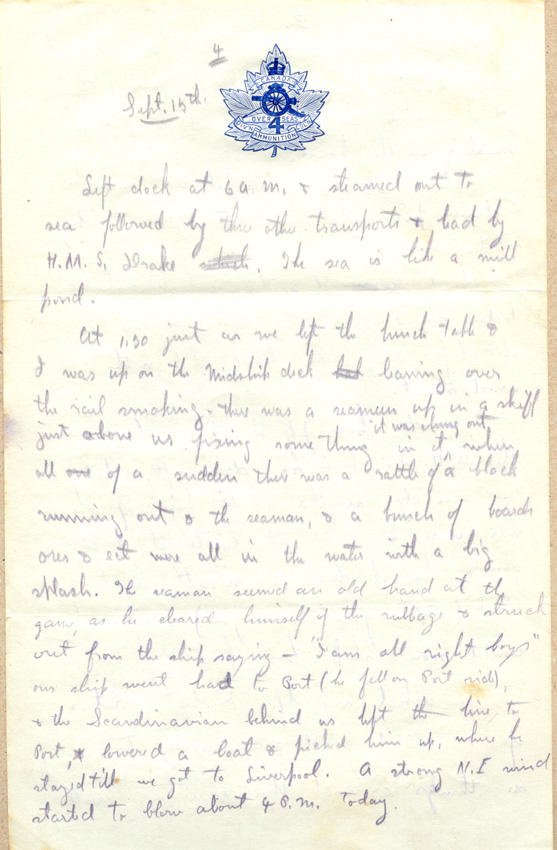 4
Sept. 15th.
CANADA
OVER SEAS
4
DIV'N AMMUNITION
Left dock at 6 a.m. & steamed out to
sea followed by three other transports & lead by
H.M.S. Drake. The sea is like a mill
pond.
At 1.30 just as we left the lunch table &
I was up on the Midship deck leaning over
the rail smoking. there was a seaman up in a skiff
it was hung out
just above us fixing something in it when
all of a sudden there was a rattle of a block
running out & the seaman, & a bunch of boards
ores & ect were all in the water with a big
splash. The seaman seemed an old hand at the
game, as he cleared himself of the rubbage & struck
out from the ship saying — "I am all right boys"
our ship went hard to Port (he fell on Port side),
& the Scandinavian behind us left the line to
Port, lowered a boat & picked him up, where he
stayed till we got to Liverpool. A strong N.E wind
started to blow about 4 P.M. Today.